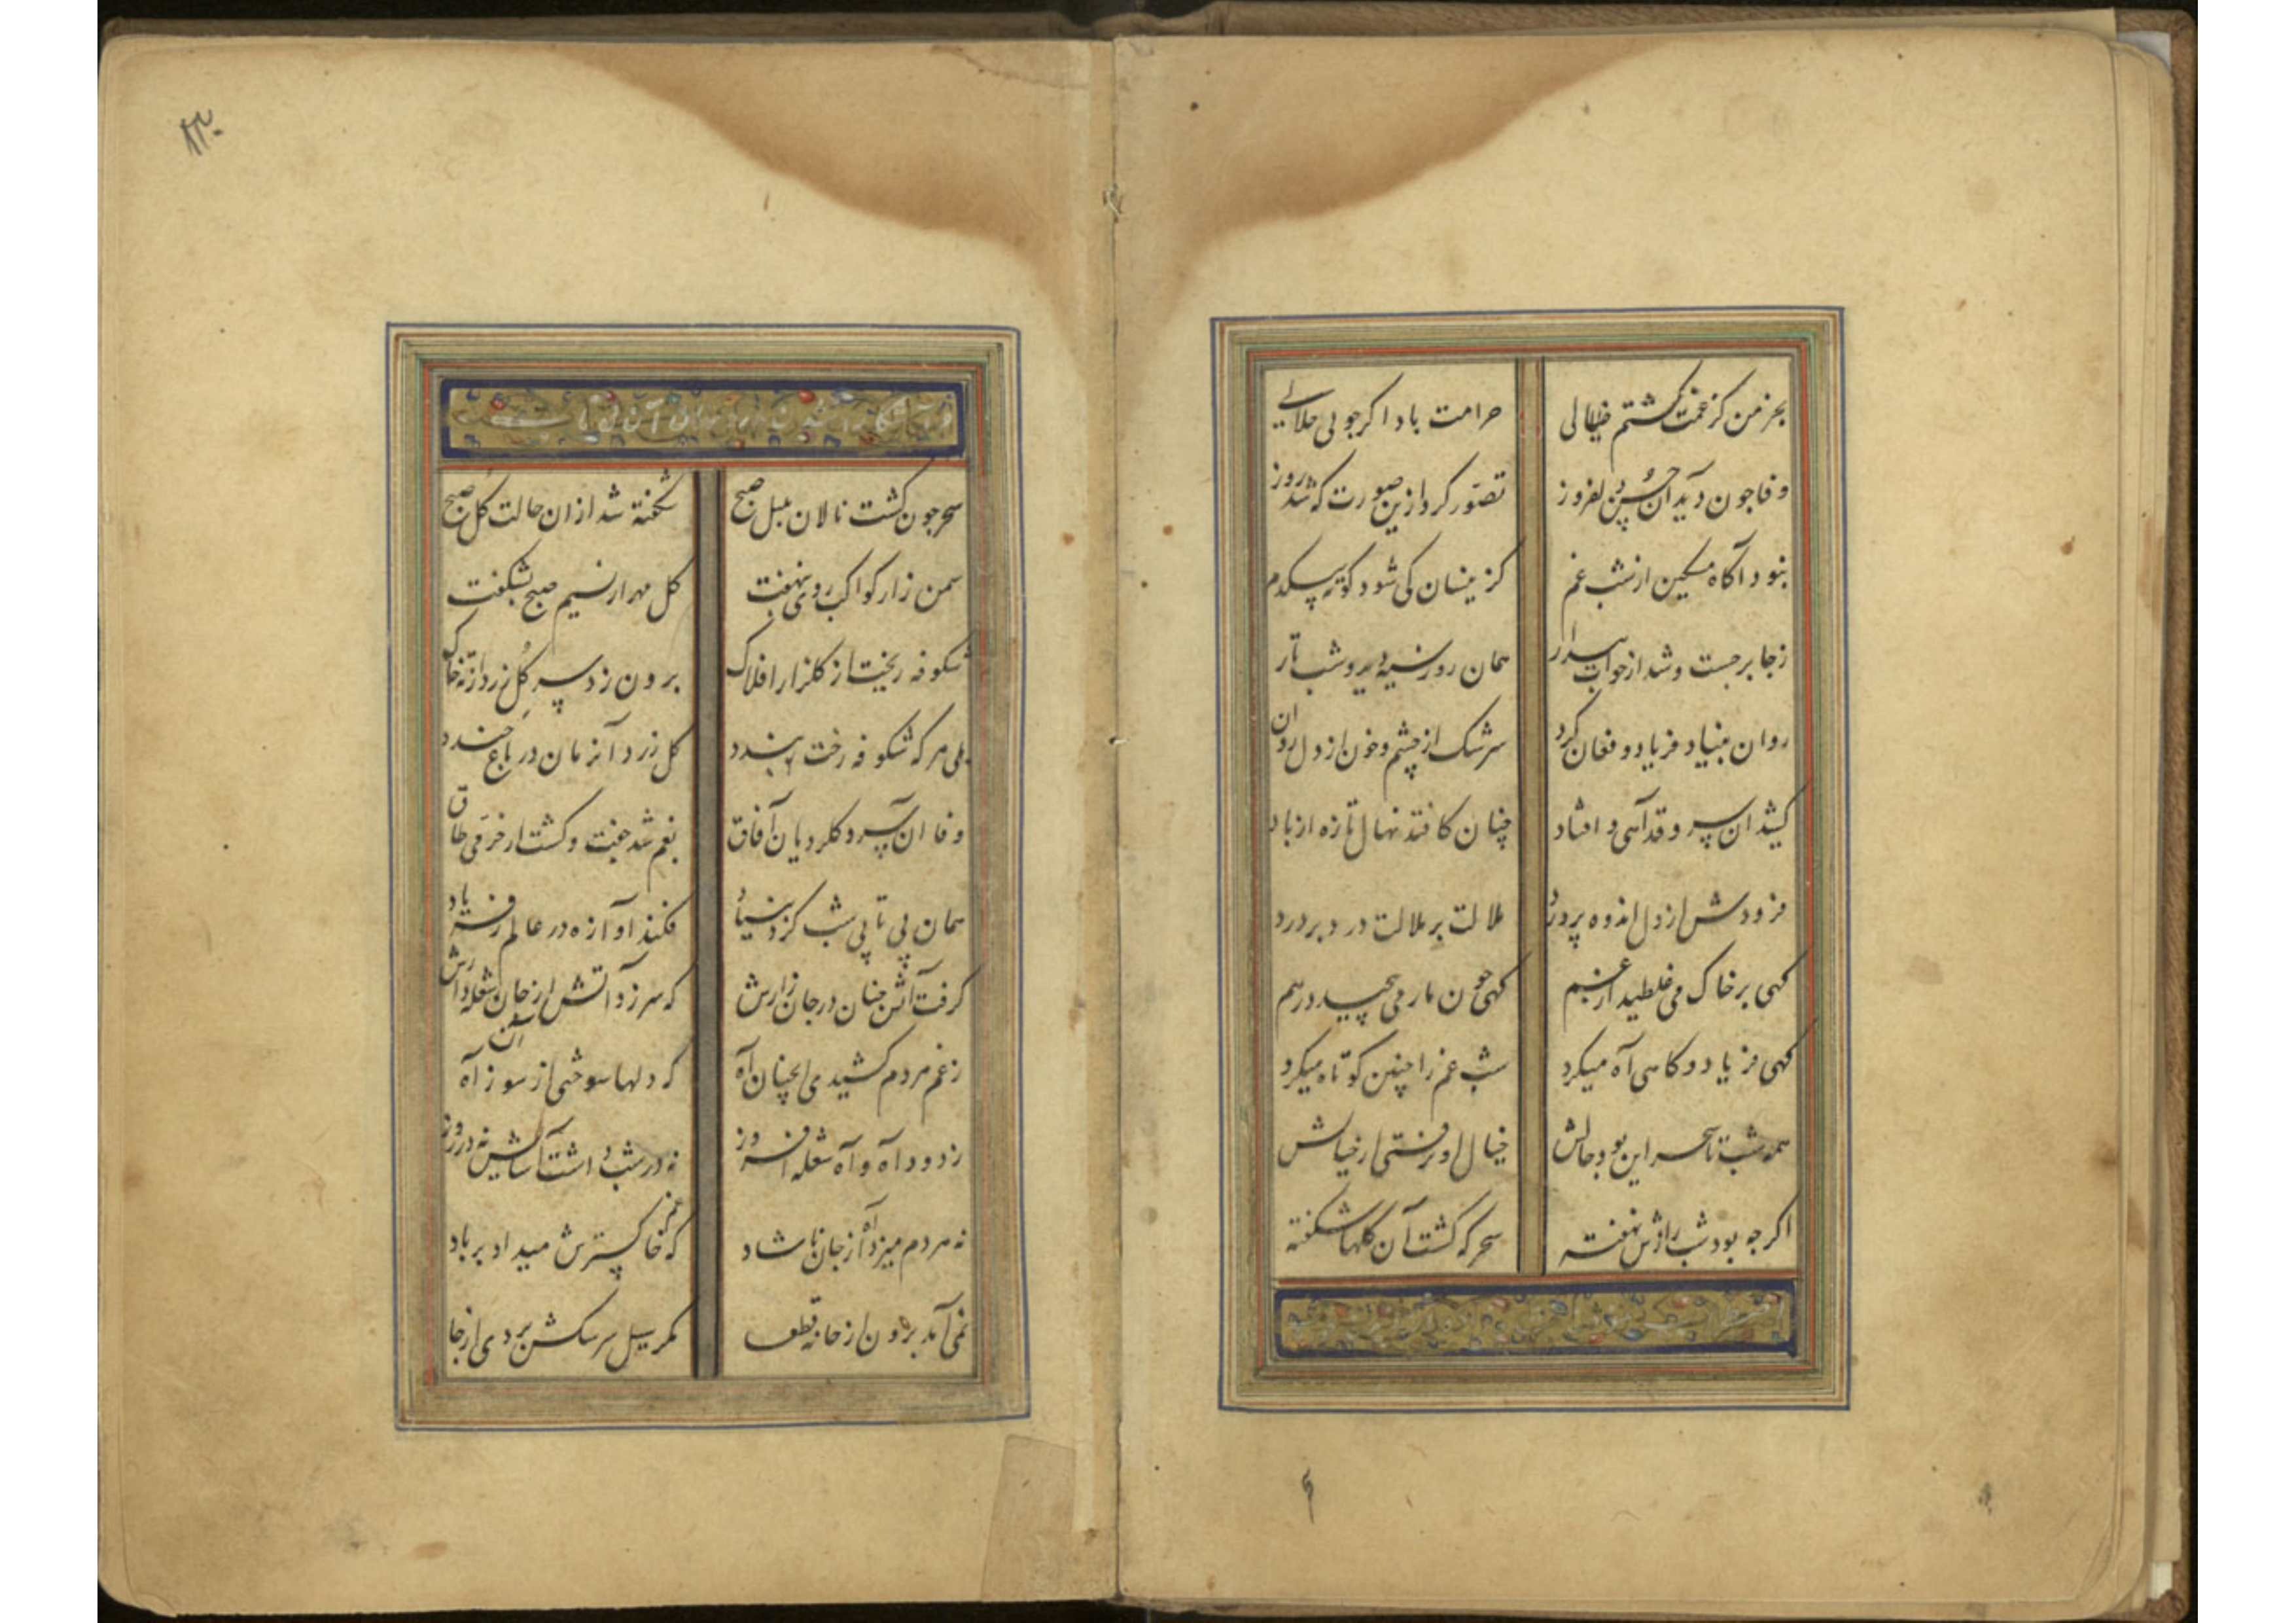 بجز من کز غمت گشتم خیالی حرامت بادا کر جویی حلالی
وفا چون دید آن حسن دلفروز تصور کرد ازین صورت که شد روز
نبود آگاه مسکین از شب غم کزینسان کی شود کوته بیکدم
ز جا برجست و شد از خواب بیدار همان روز سیه دید و شب تار
روان بنیاد فریاد و فغان کرد سرشک از چشم و خون از دل روان
کشید ان سرو قد آهی و افتاد چنان کافتد نهال تازه از باد
فزودش از دل اندوه پرورد ملالت بر ملالت درد بر درد
کهی بر خاک می غلطید از غم کهی چون مار می پیچید درهم
کهی فریاد و کاهی آه میکرد شب غم را چنین کوتاه میکرد
همه شب تا سحر این بود حالش خیال او نرفتی از خیالش
اکرچه بود شب رازش نهفته سحر که کشت آن کلها شکفته
سحر چون کشت نالان بلبل صبح شکفته شد از ان حالت کل صبح
سمن زار کواکب روی بنهفت کل مهر از نسیم صبح بشکفت
شکوفه ریخت از کلزار افلاک برون زد سر کل زرد از ته خاک
بلی هر که شکوفه رخت بندد کل زرد آنزمان در باغ خندد
وفا ان سرو کلرویان آفاق بغم شد جفت و کشت از خرمی طاق
همان بی تابی شب کرد بنیاد فکند آوازه در عالم ز فریاد
کرفت آتش چنان در جان زارش که سر زد آتش از جان شعله وارش
ز غم مردم کشیدی انچنان آه که دلها سوختی از سوز آن آه
ز دود آه و آه شعله افروز نه در شب داشت آسایش نه در روز
نه مردم میزد آه از جان ناشاد که خاکسترش میداد بر باد
نمی آمد برون از خانه قطعا مکر سیل سرشکش بردی از جا